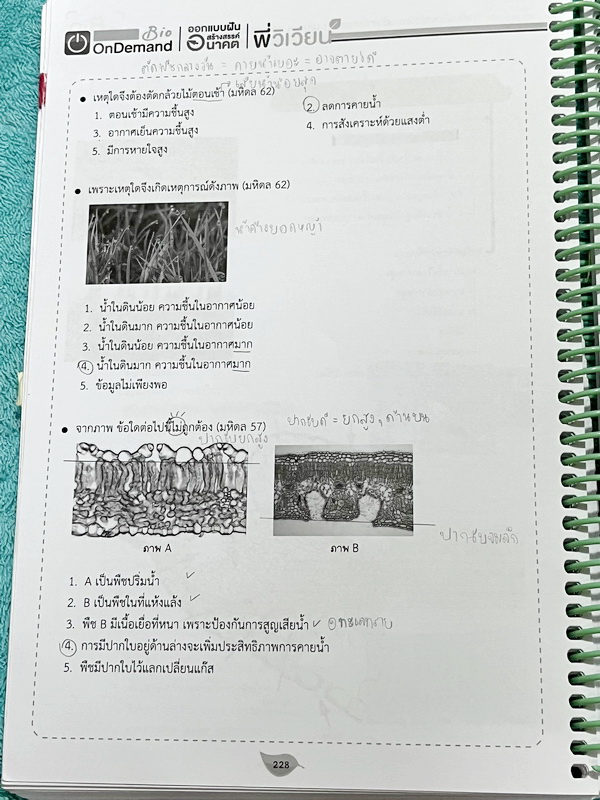 Bio
OnDemand
ออกแบบฝัน
สร้างสรรค์
อนาคต
พี่วิเวียน
• เหตุใดจึงต้องตัดกล้วยไม้ตอนเช้า (มหิดล 62)
1. ตอนเช้ามีความชื้นสูง
2. ลดการคายน้ำ
3. อากาศเย็นความชื้นสูง
4. การสังเคราะห์ด้วยแสงต่ำ
5. มีการหายใจสูง
• เพราะเหตุใดจึงเกิดเหตุการณ์ดังภาพ (มหิดล 62)
น้ำค้างยอดหญ้า
1. น้ำในดินน้อย ความชื้นในอากาศน้อย
2. น้ำในดินมาก ความชื้นในอากาศน้อย
3. น้ำในดินน้อย ความชื้นในอากาศมาก
4. น้ำในดินมาก ความชื้นในอากาศมาก
5. ข้อมูลไม่เพียงพอ
• จากภาพ ข้อใดต่อไปนี้ไม่ถูกต้อง (มหิดล 57)
= ยกสูง, ด้านบน
ปากใบยกสูง
ปากใบจมลึก
ภาพ A
ภาพ B
1. A เป็นพืชปริ่มน้ำ ✓
2. B เป็นพืชในที่แห้งแล้ง ✓
3. พืช B มีเนื้อเยื่อที่หนา เพราะป้องกันการสูญเสียน้ำ ✓
4. การมีปากใบอยู่ด้านล่างจะเพิ่มประสิทธิภาพการคายน้ำ
5. พืชมีปากใบไว้แลกเปลี่ยนแก๊ส
228